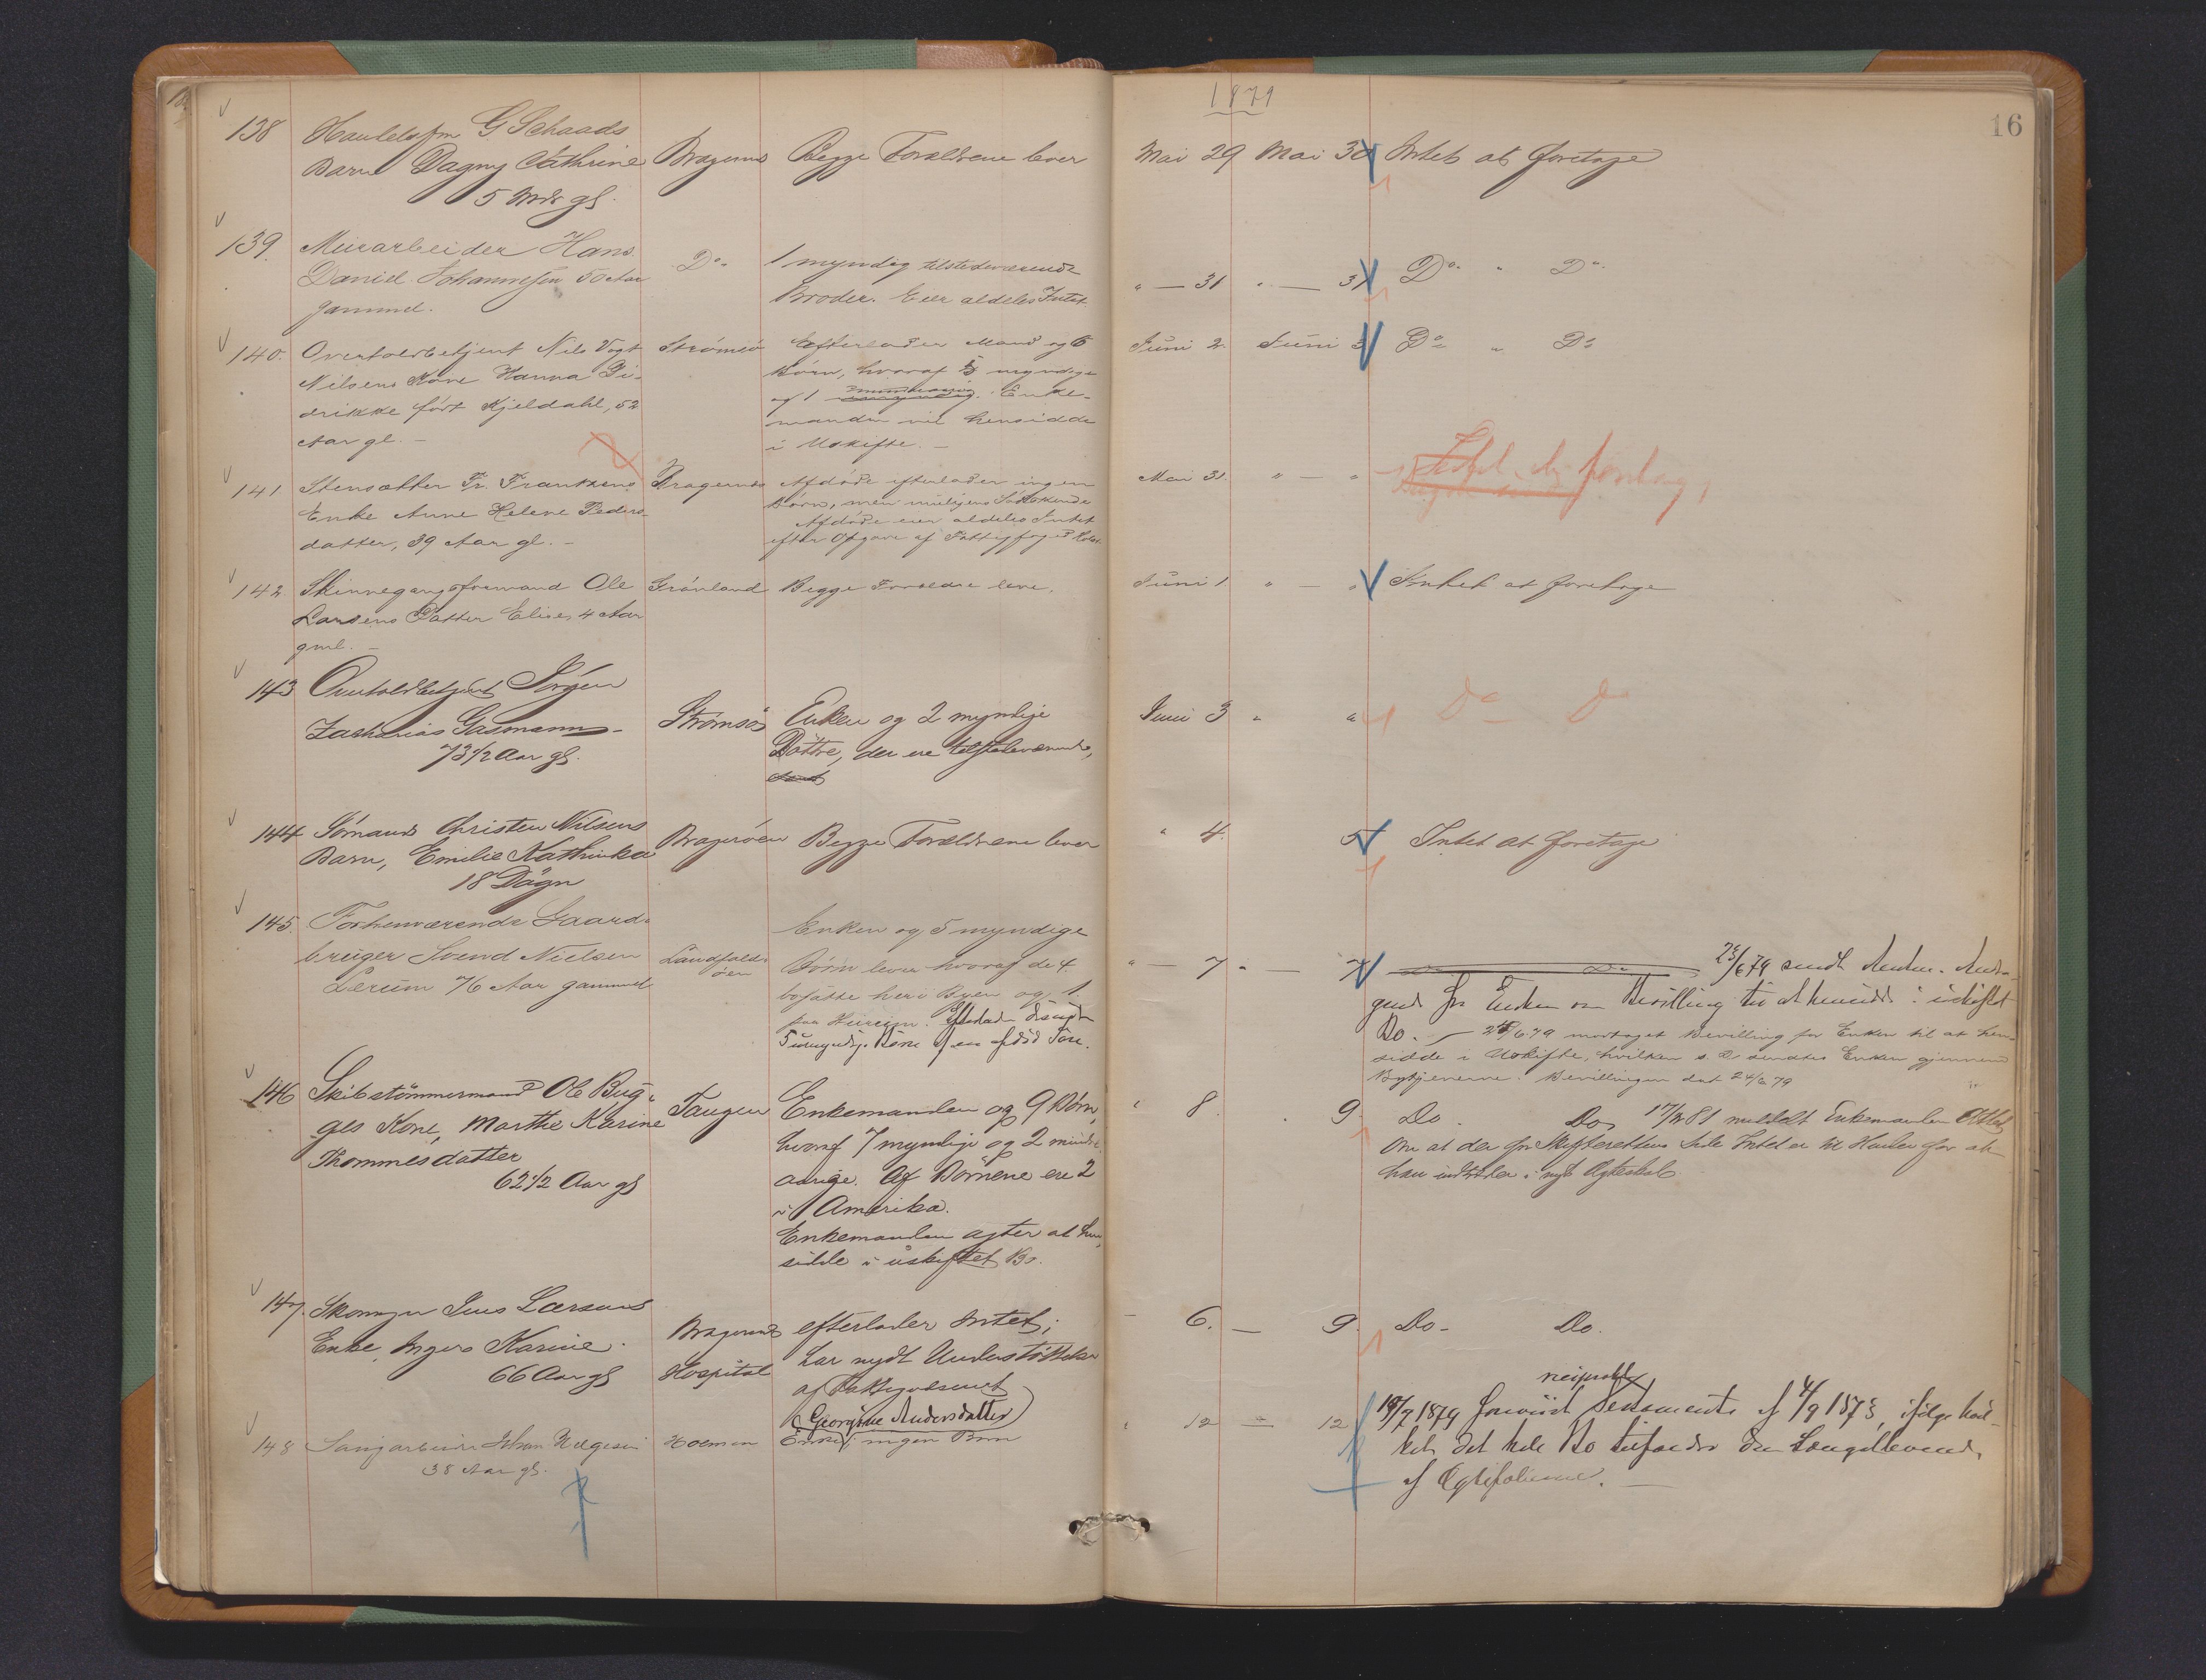 1879
16
138 Handelsfm G Schaads
Barn Dagny Cathrine
5 Mdr gl.
Bragernes
Begge Forældrene lever
Mai 29 Mai 30 Intet at foretage
139. Murarbeider Hans
Daniel Johannesen 50 Aar
gammel.
Do
1 myndig tilstedeværende
Broder. Eier aldeles Intet.
" — 31 " — 31 Do " Do
140. Overtoldbetjent Nils Vogt
Nilsens Kone Hanna Di-
drikke født Kjeldahl, 52
Aar gl. —
Strømsø
Efterlader Mand og 6
Børn, hvoraf 5 myndige
og 1 . Enke-
manden vil hensidde
i Uskifte. —
Juni 2. Juni 3 Do " Do
141 Stensætter Fr. Frantzens
Enke Anne Helene Peders-
datter, 39 Aar gl. —
Bragernes
Afdøde efterlader ingen
Børn, men muligens Sødskende
Afdøde eier aldeles Intet
efter Opgave af Fattigfoged
Mai 31. " — "
142 Skinnegangsformand Ole
Larsens Datter Elise, 4 Aar
gml. —
Grønland
Begge Forældre leve.
Juni 1 " — " Intet at foretage
143 Overtoldbetjent Jørgen
Zacharias Gasmann —
73 1/2 Aar gl.
Strømsø
Enken og 2 myndige
Døttre, der ere tilstedeværende,
Juni 3 " " Do — Do
144 Sømand Christen Nilsens
Barn, Emilie Kathinka
18 Døgn
Bragerøen
Begge Forældrene lever
" 4. 5 Intet at foretage
145. Forhenværende Gaard-
bruger Svend Nielsen
Lerum 76 Aar gammel
Landfald-
øen
Enken og 5 myndige
Børn lever hvoraf de 4
bosatte her i Byen og 1
paa . Efterlader desuden
5 umyndige Børn af en afdød Søn.
" — 7 " — 7
23/6 79 sendt Amtm. Andra-
gende fra Enken om Bevilling til at hensidde i uskiftet
Bo. — 25/6 79 modtaget Bevilling for Enken til at hen-
sidde i Uskifte, hvilken s. D. sendtes Enken gjennem
. Bevillingen dat 24/6 79
146 Skibstømmermand Ole Bug-
ges Kone, Marthe Karine
Thommesdatter
62 1/2 Aar gl
Tangen
Enkemanden og 9 Børn,
hvoraf 7 myndige og 2 mindre-
aarige. Af Børnene ere 2
i Amerika.
Enkemanden agter at hen-
sidde i uskiftet Bo.
" 8. . 9. Do. Do 81 meddelt Enkemanden Attest
om at der fra Skifterettens Side Intet er til Hinder for at
han indtræder i nyt Ægteskab.
147. Skomager Jens Larsens
Enke, Inger Karine.
66 Aar gl
Bragernes
Hospital
efterlader Intet;
har nydt Understøttelse
af Fattigvæsenet
— 6. — 9. Do — Do.
148 Saugarbeider Johan Helgesen
38 Aar gl.
Holmen
(Georgine Andersdatter)
Enke, ingen Børn
" 12 — 12
reciprokt
18/7 1879 forevist Testamente af 4/9 1873, ifølge hvil-
ket det hele Bo tilfalder den Længstlevende
af Ægtefolkene. —